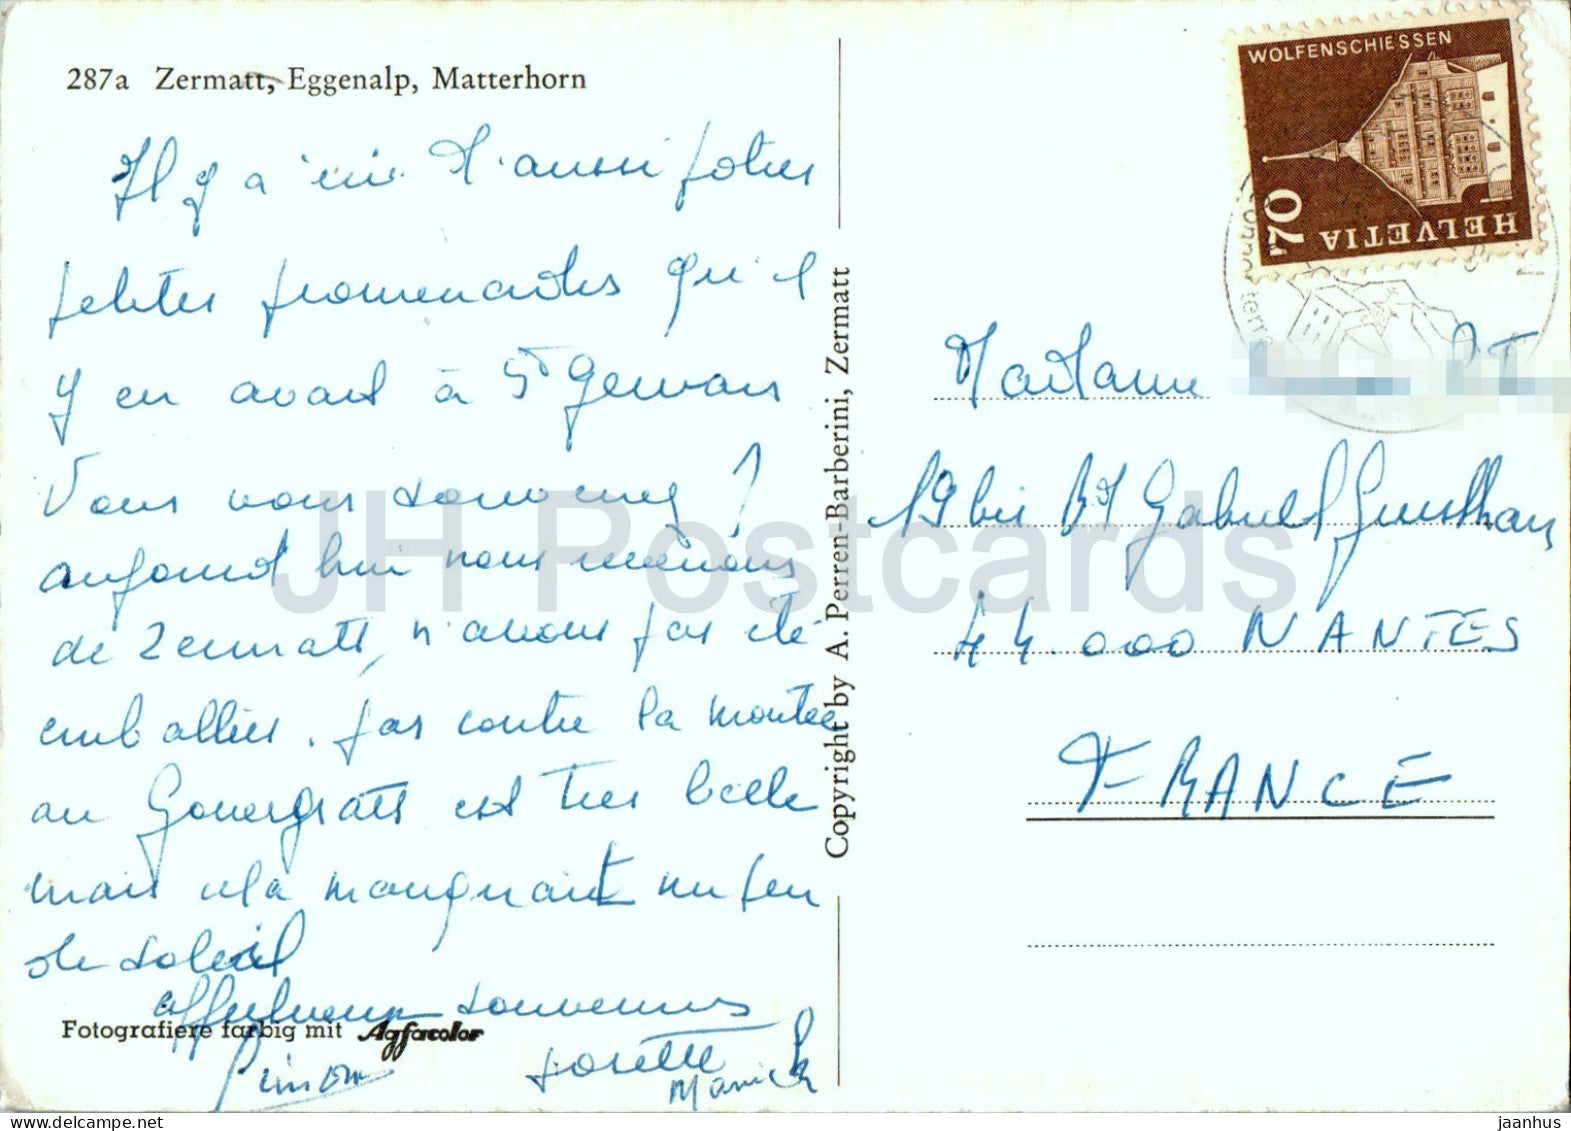 287a Zermatt, Eggenalp, Matterhorn
Il y a ici d'aussi jolies
petites promenades qu'il
y en avait à St Gervais
Vous vous souvenez ?
aujourd'hui nous revenons
de Zermatt, n'avons pas été
emballés. par contre la montée
au Gornergratt est très belle
mais cela manquait un peu
de soleil
affectueux souvenirs
Simon
Josette
Manick
Fotografiere farbig mit Agfacolor
Copyright by A. Perren-Barberini, Zermatt
WOLFENSCHIESSEN
70
HELVETIA
Madame
19 bis Bd Gabriel Guisthau
44.000 NANTES
FRANCE
JH Postcards
jaanhus